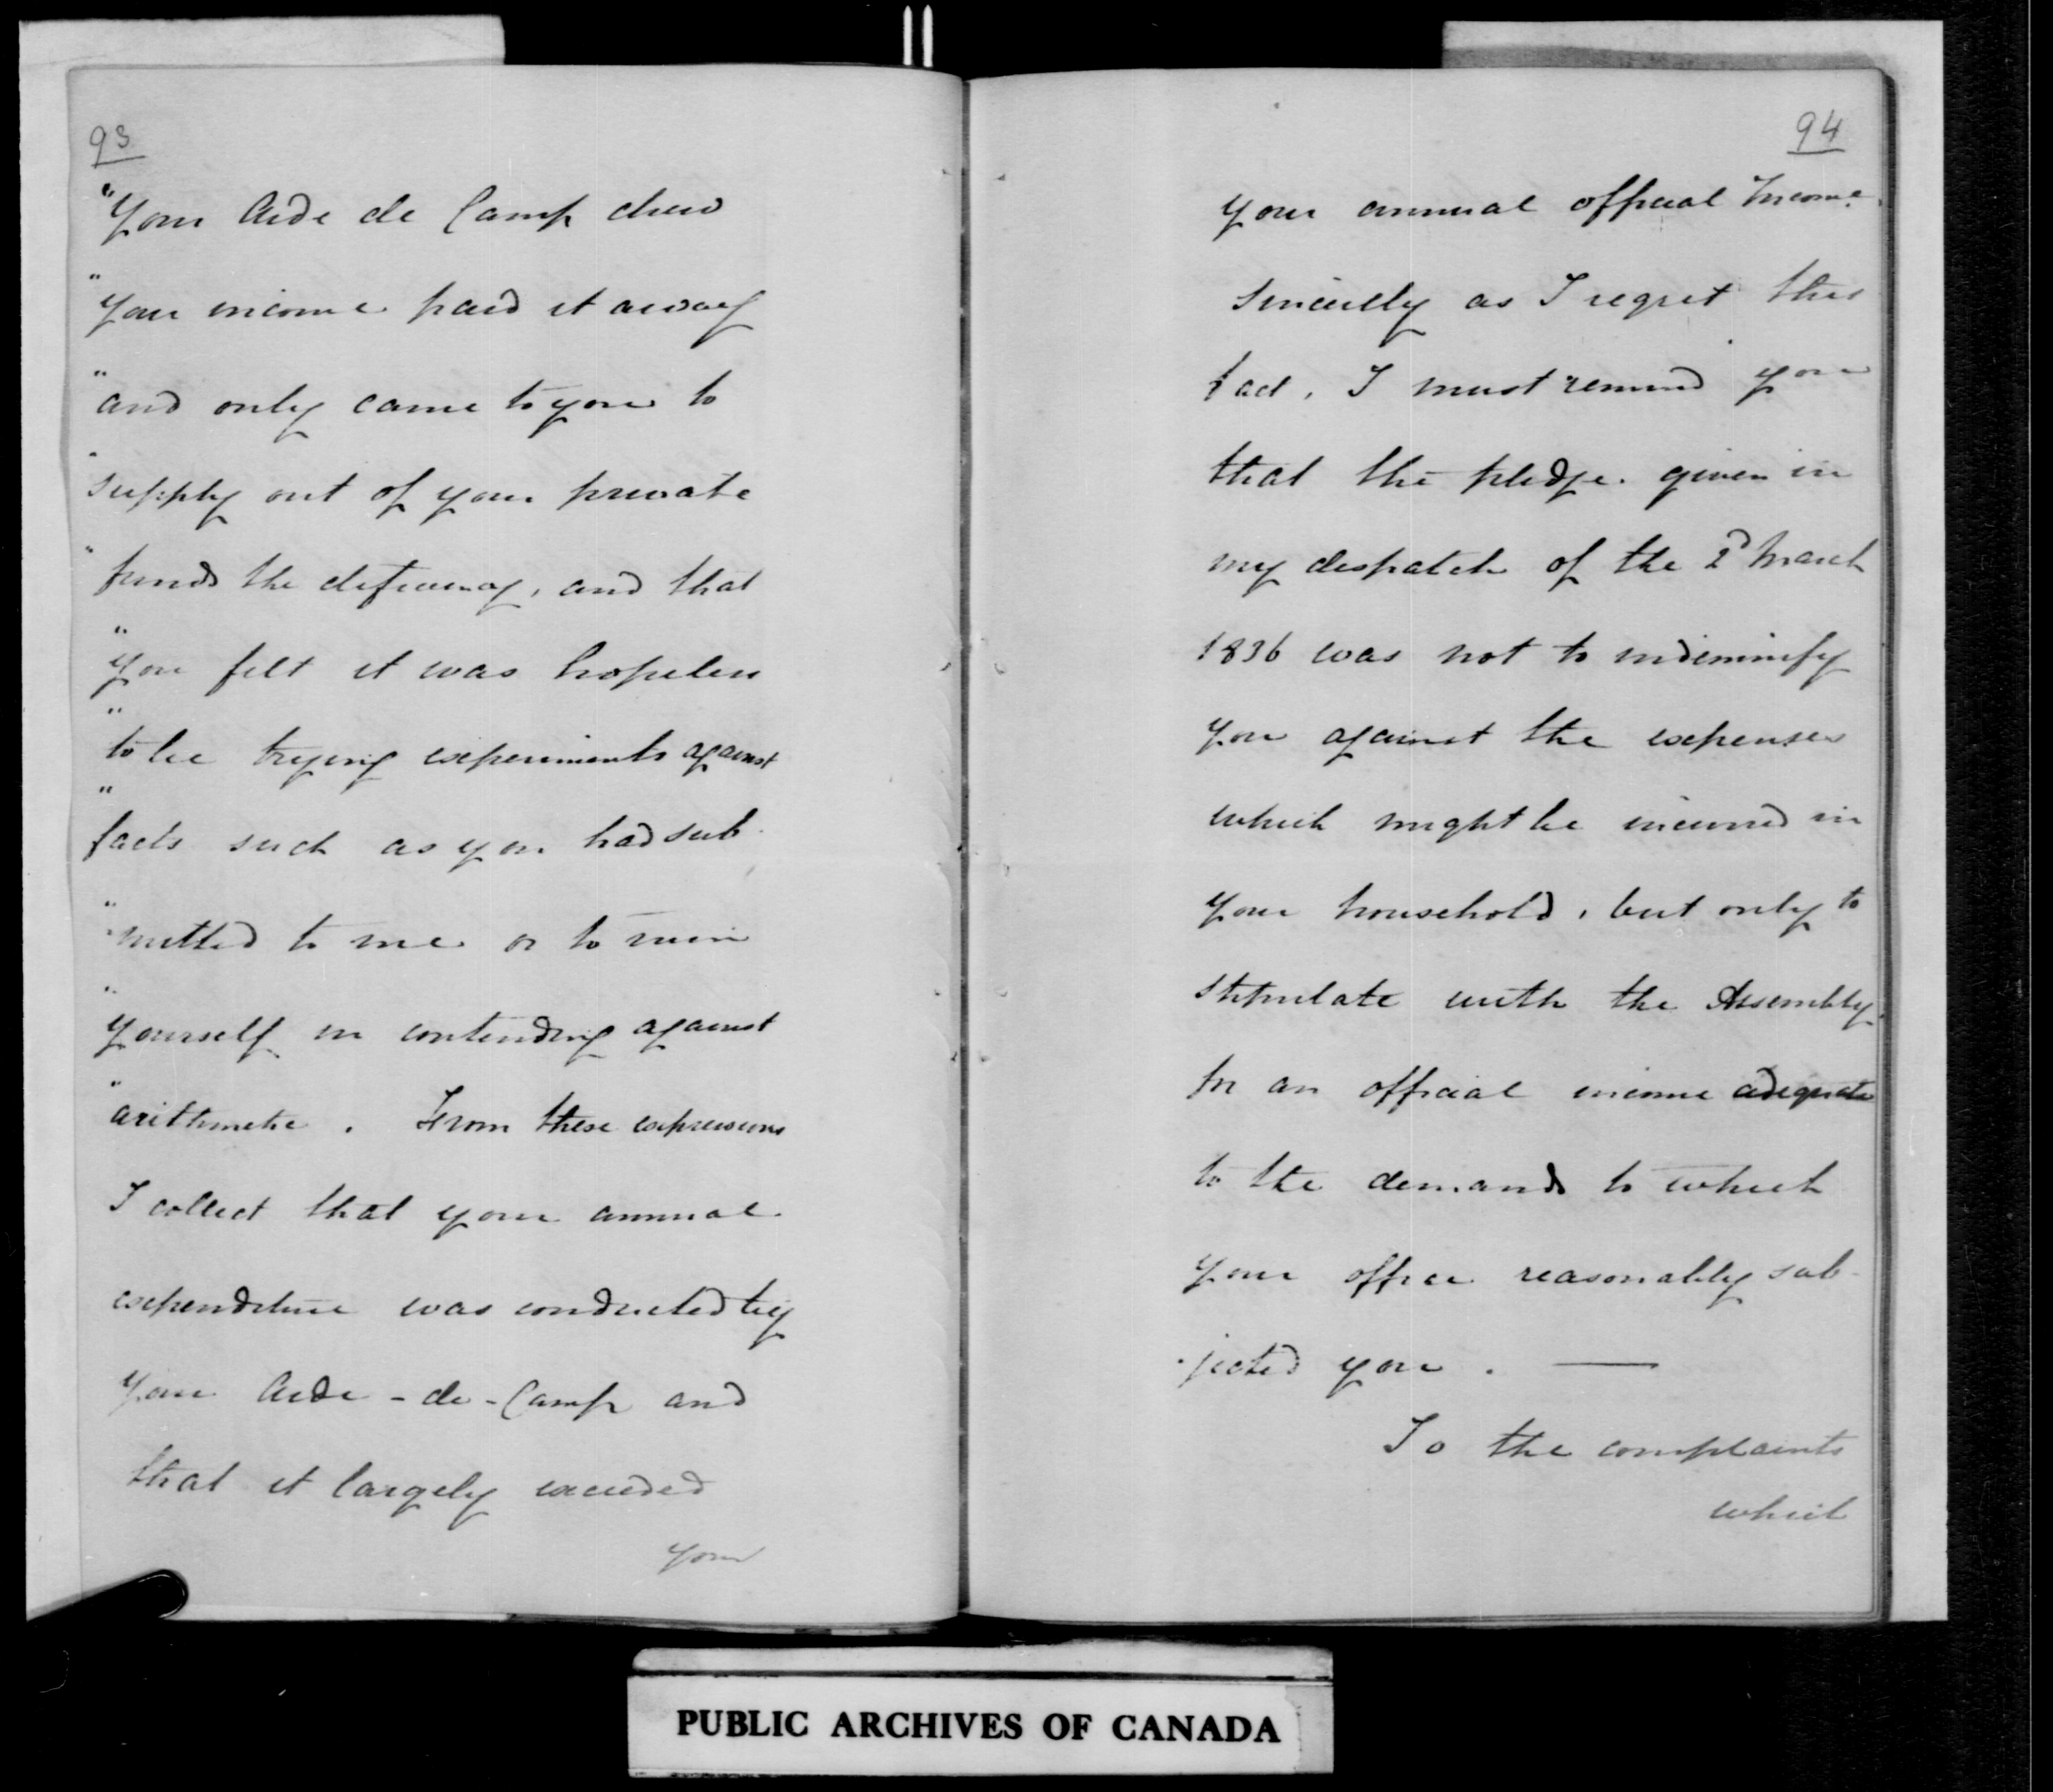 93
"Your Aide de Camp drew
"your income paid it away
"and only came to you to
"supply out of your private
"funds the deficiency, and that
"you felt it was hopeless
"to be trying experiments against
"facts such as you had sub-
"mitted to me or to ruin
"yourself in contending against
"arithmetic. From these expressions
I collect that your annual
expenditure was conducted by
your Aide-de-Camp and
that it largely exceeded
your
94
your annual official Income.
Sincerely as I regret this
fact, I must remind you
that the pledge given in
my despatch of the 2d March
1836 was not to indemnify
you against the expenses
which might be incurred in
your household, but only to
stipulate with the Assembly
for an official income adequate
to the demands to which
your office reasonably sub-
jected you. —
To the complaints
which
PUBLIC ARCHIVES OF CANADA